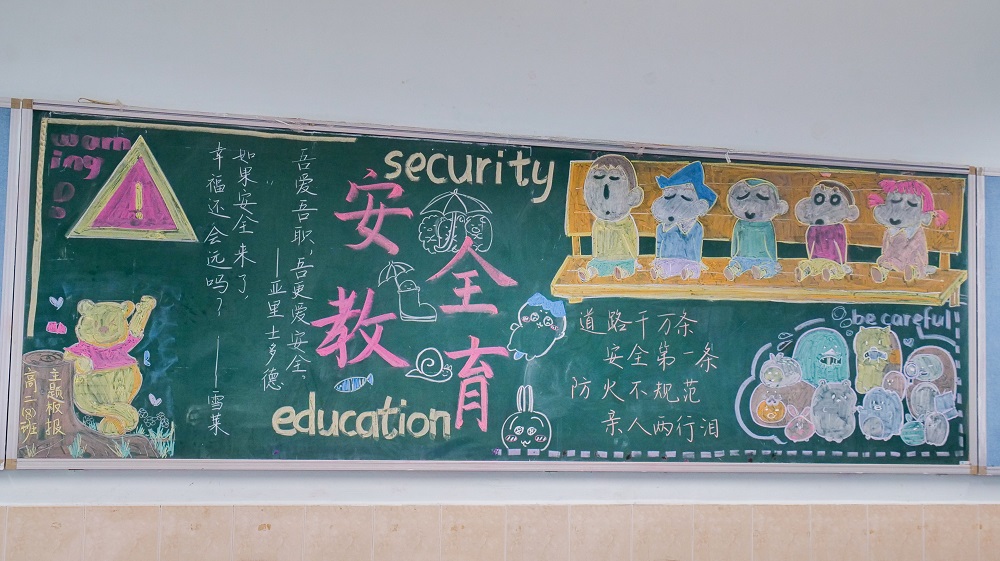 warn
ing
!
security
安全
教育
education
吾爱吾职,吾更爱安全、
——亚里士多德
如果安全来了,
幸福还会远吗?
——雪莱
主题板报
高二(8)班
道路千万条
安全第一条
防火不规范
亲人两行泪
be careful